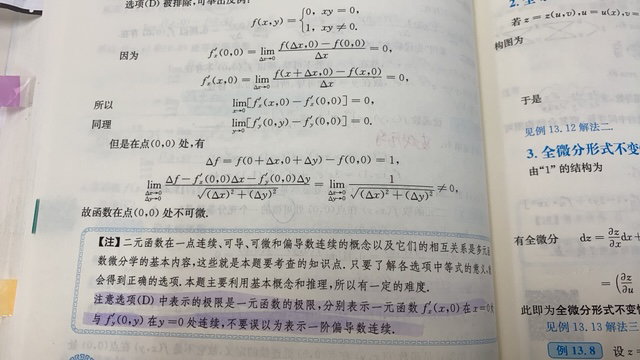 选项(D)被排除,可举出反例:
f(x,y)={0, xy=0,
1, xy≠0.
因为 f′ₓ(0,0)=lim_{Δx→0} (f(Δx,0)−f(0,0))/Δx=0,
f′ₓ(x,0)=lim_{Δx→0} (f(x+Δx,0)−f(x,0))/Δx=0,
所以 lim_{x→0}[f′ₓ(x,0)−f′ₓ(0,0)]=0,
同理 lim_{y→0}[f′ᵧ(0,y)−f′ᵧ(0,0)]=0.
但是在点(0,0)处,有
Δf=f(0+Δx,0+Δy)−f(0,0)=1,
lim_{Δx→0, Δy→0} (Δf−f′ₓ(0,0)Δx−f′ᵧ(0,0)Δy)/√((Δx)²+(Δy)²)=lim_{Δx→0, Δy→0} 1/√((Δx)²+(Δy)²)≠0,
故函数在点(0,0)处不可微.
【注】二元函数在一点连续、可导、可微和偏导数连续的概念以及它们的相互关系是多元
数微分学的基本内容,这些就是本题要考查的知识点.只要了解各选项中等式的意义,
会得到正确的选项.本题主要利用基本概念和推理,所以有一定的难度.
注意选项(D)中表示的极限是一元函数的极限,分别表示一元函数 f′ₓ(x,0)在x=0
与 f′ᵧ(0,y)在y=0处连续,不要误以为表示一阶偏导数连续.
若z=z(u,v),u=u(x),v=
构图为
于是
见例13.12解法二.
3. 全微分形式不变
由“1”的结构为
有全微分 dz=∂z/∂x dx+
=(∂z/∂u
此即为全微分形式不变
见例13.13解法三.
例13.8 设z=